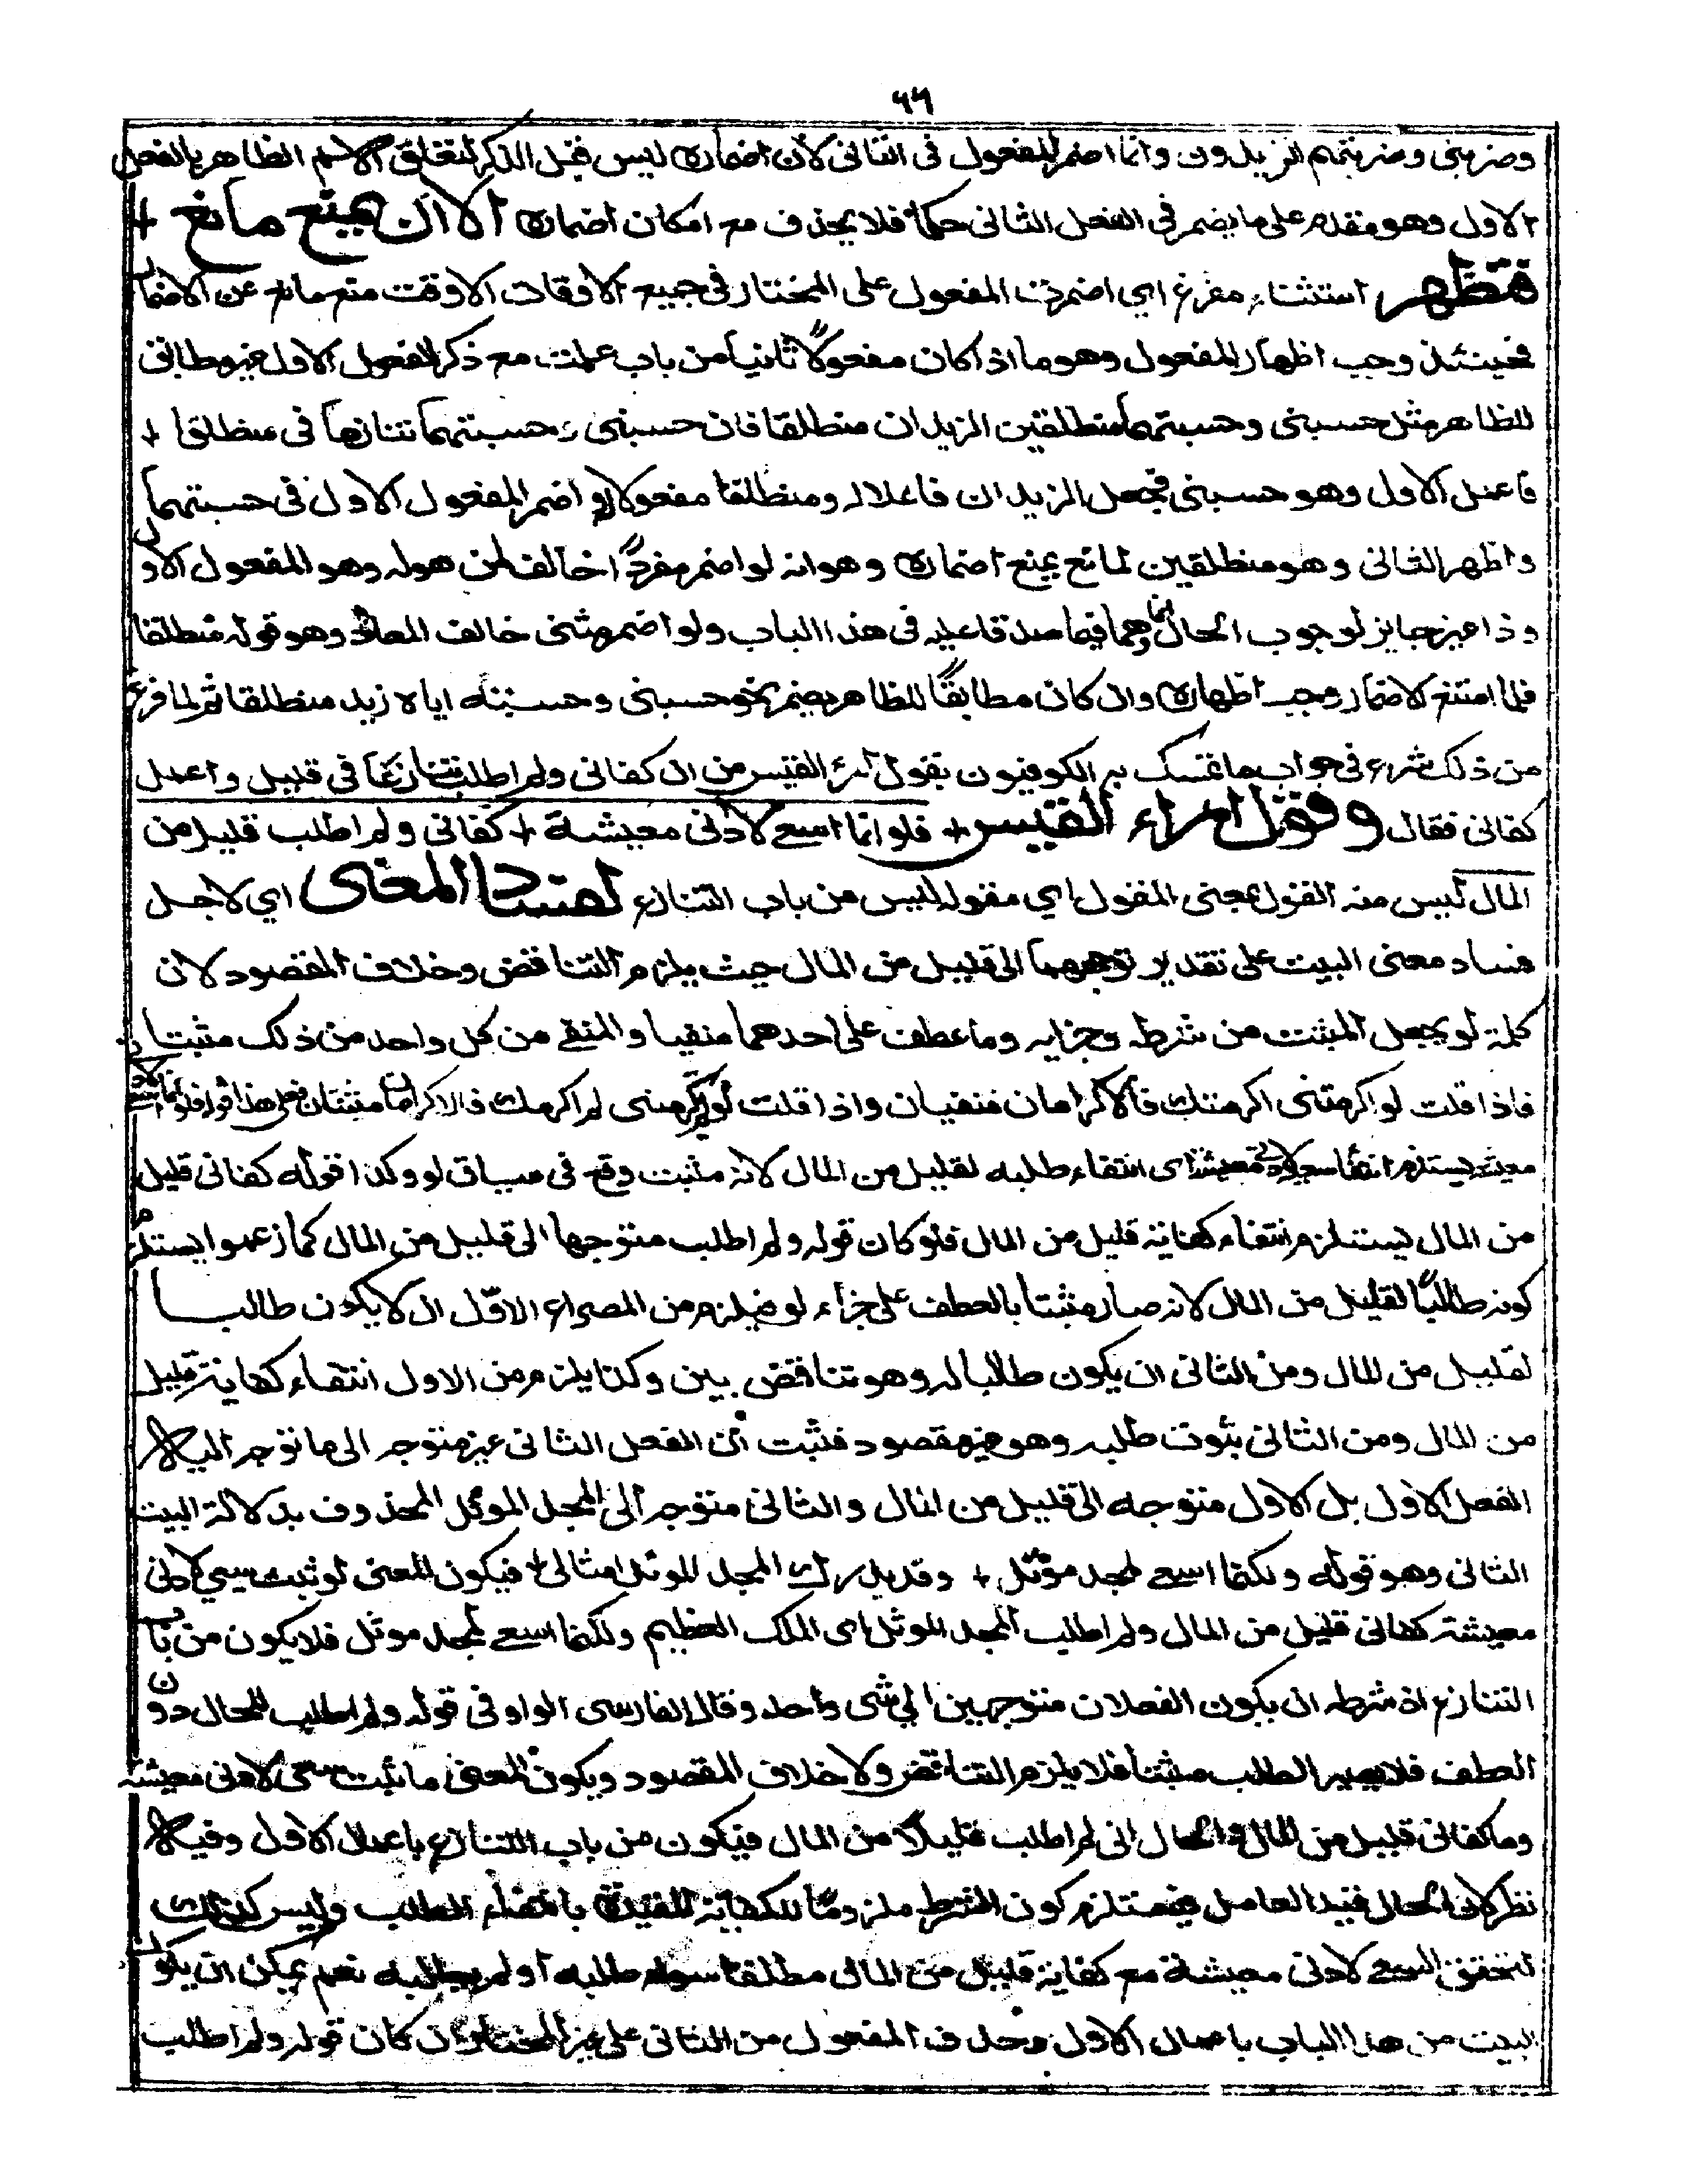 ٦٦
وضربنى وضربتهم الزيدون وانما اضمر المفعول فى الثانى لان اضماره ليس قبل الذكر لتعلق الاسم الظاهر بالفعل
الاول وهو مقدم على ما يضمر فى الفعل الثانى حكما فلا يحذف مع امكان اضماره الا ان يمنع مانع +
فتظهر استثناء مفرغ اى اضمرت المفعول على المختار فى جميع الاوقات الا وقت منع مانع عن الاضمار
فحينئذ وجب اظهار المفعول وهو ما اذا كان مفعولا ثانيا من باب علمت مع ذكر المفعول الاول غير مطابق
للظاهر مثل حسبنى وحسبتهما منطلقين الزيدان منطلقا فان حسبنى وحسبتهما تنازعا فى منطلقا +
فاعمل الاول وهو حسبنى فجعل الزيدان فاعلا له ومنطلقا مفعولا له واضمر المفعول الاول فى حسبتهما
واظهر الثانى وهو منطلقين لمانع يمنع اضماره وهو انه لو اضمر مفردا خالف لمن هوله وهو المفعول الاول
وذا غير جايز لوجوب اتحادهما فيما صدقا عليه فى هذا الباب ولو اضمر مثنى خالف المعاد وهو قوله منطلقا
فلما امتنع الاضمار وجب اظهاره وان كان مطابقا للظاهر يضمر نحو حسبنى وحسبته اياه زيد منطلقا ثم لما فرغ
من ذلك شرع فى جواب ما تمسك به الكوفيون بقول امرء القيس من ان كفانى ولم اطلب تنازعا فى قليل واعمل
كفانى فقال وقول امراء القيس + فلو انما اسعى لادنى معيشة + كفانى ولم اطلب قليل من
المال ليس منه القول بمعنى المقول اى مقوله ليس من باب التنازع لفساد المعنى اى لاجل
فساد معنى البيت على تقدير توجههما الى قليل من المال حيث يلزم التناقض وخلاف المقصود لان
كلمة لو يجعل المثبت من شرطه وجزايه وما عطف على احدهما منفيا والمنفى من كل واحد من ذلك مثبتا
فاذا قلت لو اكرمتنى اكرمتك فالاكرامان منفيان واذا قلت لو لم تكرمنى لم اكرمك فالاكرامان مثبتان فعلى هذا قوله فلو انما اسعى لادنى
معيشة يستلزم انتفاء سعيه لادنى معيشة اى انتفاء طلبه لقليل من المال لانه مثبت وقع فى سياق لو وكذا قوله كفانى قليل
من المال يستلزم انتفاء كفاية قليل من المال فلو كان قوله ولم اطلب متوجها الى قليل من المال كما زعموا يستلزم
كونه طالبا لقليل من المال لانه صار مثبتا بالعطف على جزاء لو فيلزم من المصراع الاول ان لا يكون طالبا
لقليل من المال ومن الثانى ان يكون طالبا له وهو تناقض بين وكذا يلزم من الاول انتفاء كفاية قليل
من المال ومن الثانى ثبوت طلبه وهو غير مقصود فثبت ان الفعل الثانى غير متوجه الى ما توجه اليه
الفعل الاول بل الاول متوجه الى قليل من المال والثانى متوجه الى المجد الموثل المحذوف بدلالة البيت
الثانى وهو قوله ولكنما اسعى لمجد موثل + وقد يدرك المجد الموثل امثالى + فيكون المعنى لو ثبت سعيى لادنى
معيشة كفانى قليل من المال ولم اطلب المجد الموثل اى الملك العظيم ولكنما اسعى لمجد موثل فلا يكون من باب
التنازع اذ شرطه ان يكون الفعلان متوجهين الى شى واحد وقال الفارسى الواو فى قوله ولم اطلب للحال دون
العطف فلا يصير الطلب مثبتا فلا يلزم التناقض ولا خلاف المقصود ويكون المعنى ما ثبت سعى لادنى معيشة
وما كفانى قليل من المال والحال انى لم اطلب قليلا من المال فيكون من باب التنازع باعمال الاول وفيه
نظر لان الحال قيد العامل فيستلزم كون الشرط ملزوما للكفاية المقيدة بانتفاء الطلب وليس كذلك
لتحقق السعى لادنى معيشة مع كفاية قليل من المال مطلقا سواء طلبه او لم يطلبه نعم يمكن ان يكون
البيت من هذا الباب باعمال الاول وحذف المفعول من الثانى على غير المختار ان كان قوله ولم اطلب